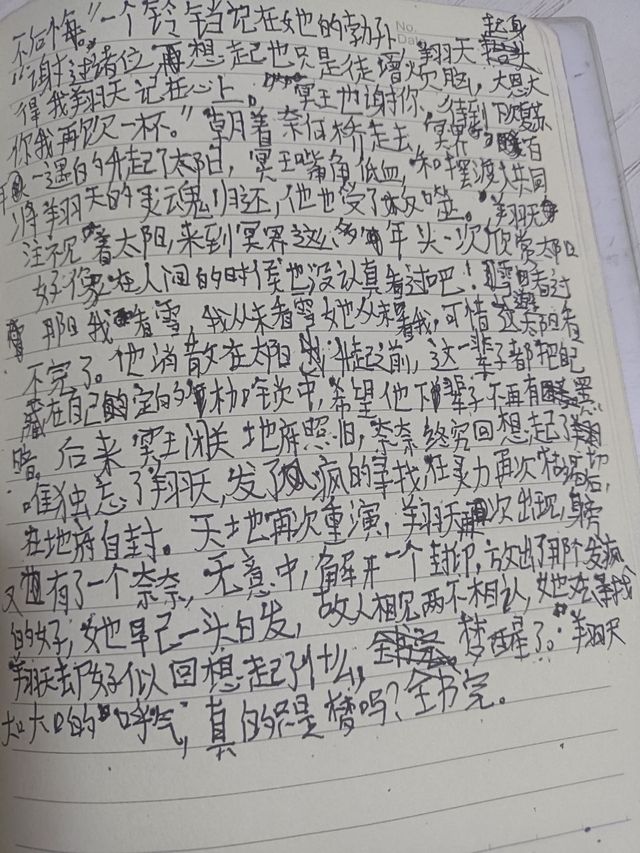 No.
Date
不后悔。”一个铃铛记在她的脖子 起身
“谢过诸位再想起也只是徒增烦脑,翔天抬头
得我翔天记在心上。”冥王也谢你,大恩大
你我再饮一杯。”朝着奈何桥走去,冥界
一遇的升起了太阳,冥王嘴角低血,和摆渡人共同
将翔天的灵魂归还,他也受了反噬。翔天
注视着太阳,来到冥界这么多年头一次欣赏太阳
好像在人间的时候也没认真看过吧!
那日我看雪,我从未看雪她从未看我,可惜这太阳看
不完了。他消散在太阳升起前,这一辈子都把自己
藏在自己的定的枷锁中,希望他下辈子不再有黑
暗。后来冥王闭关地府照旧,奈奈终究回想起了
唯独忘了翔天,发了疯的寻找,在灵力再次枯竭后,
在地府自封。天地再次重演,翔天再次出现,身旁
又有了一个奈奈,无意中,解开一个封印,放出了那个发疯
的女子,她早已一头白发,故人相见两不相认,她在寻找
翔天女子似回想起了什么,梦醒了。翔天
大口大口的呼气,真的只是梦吗?全书完。